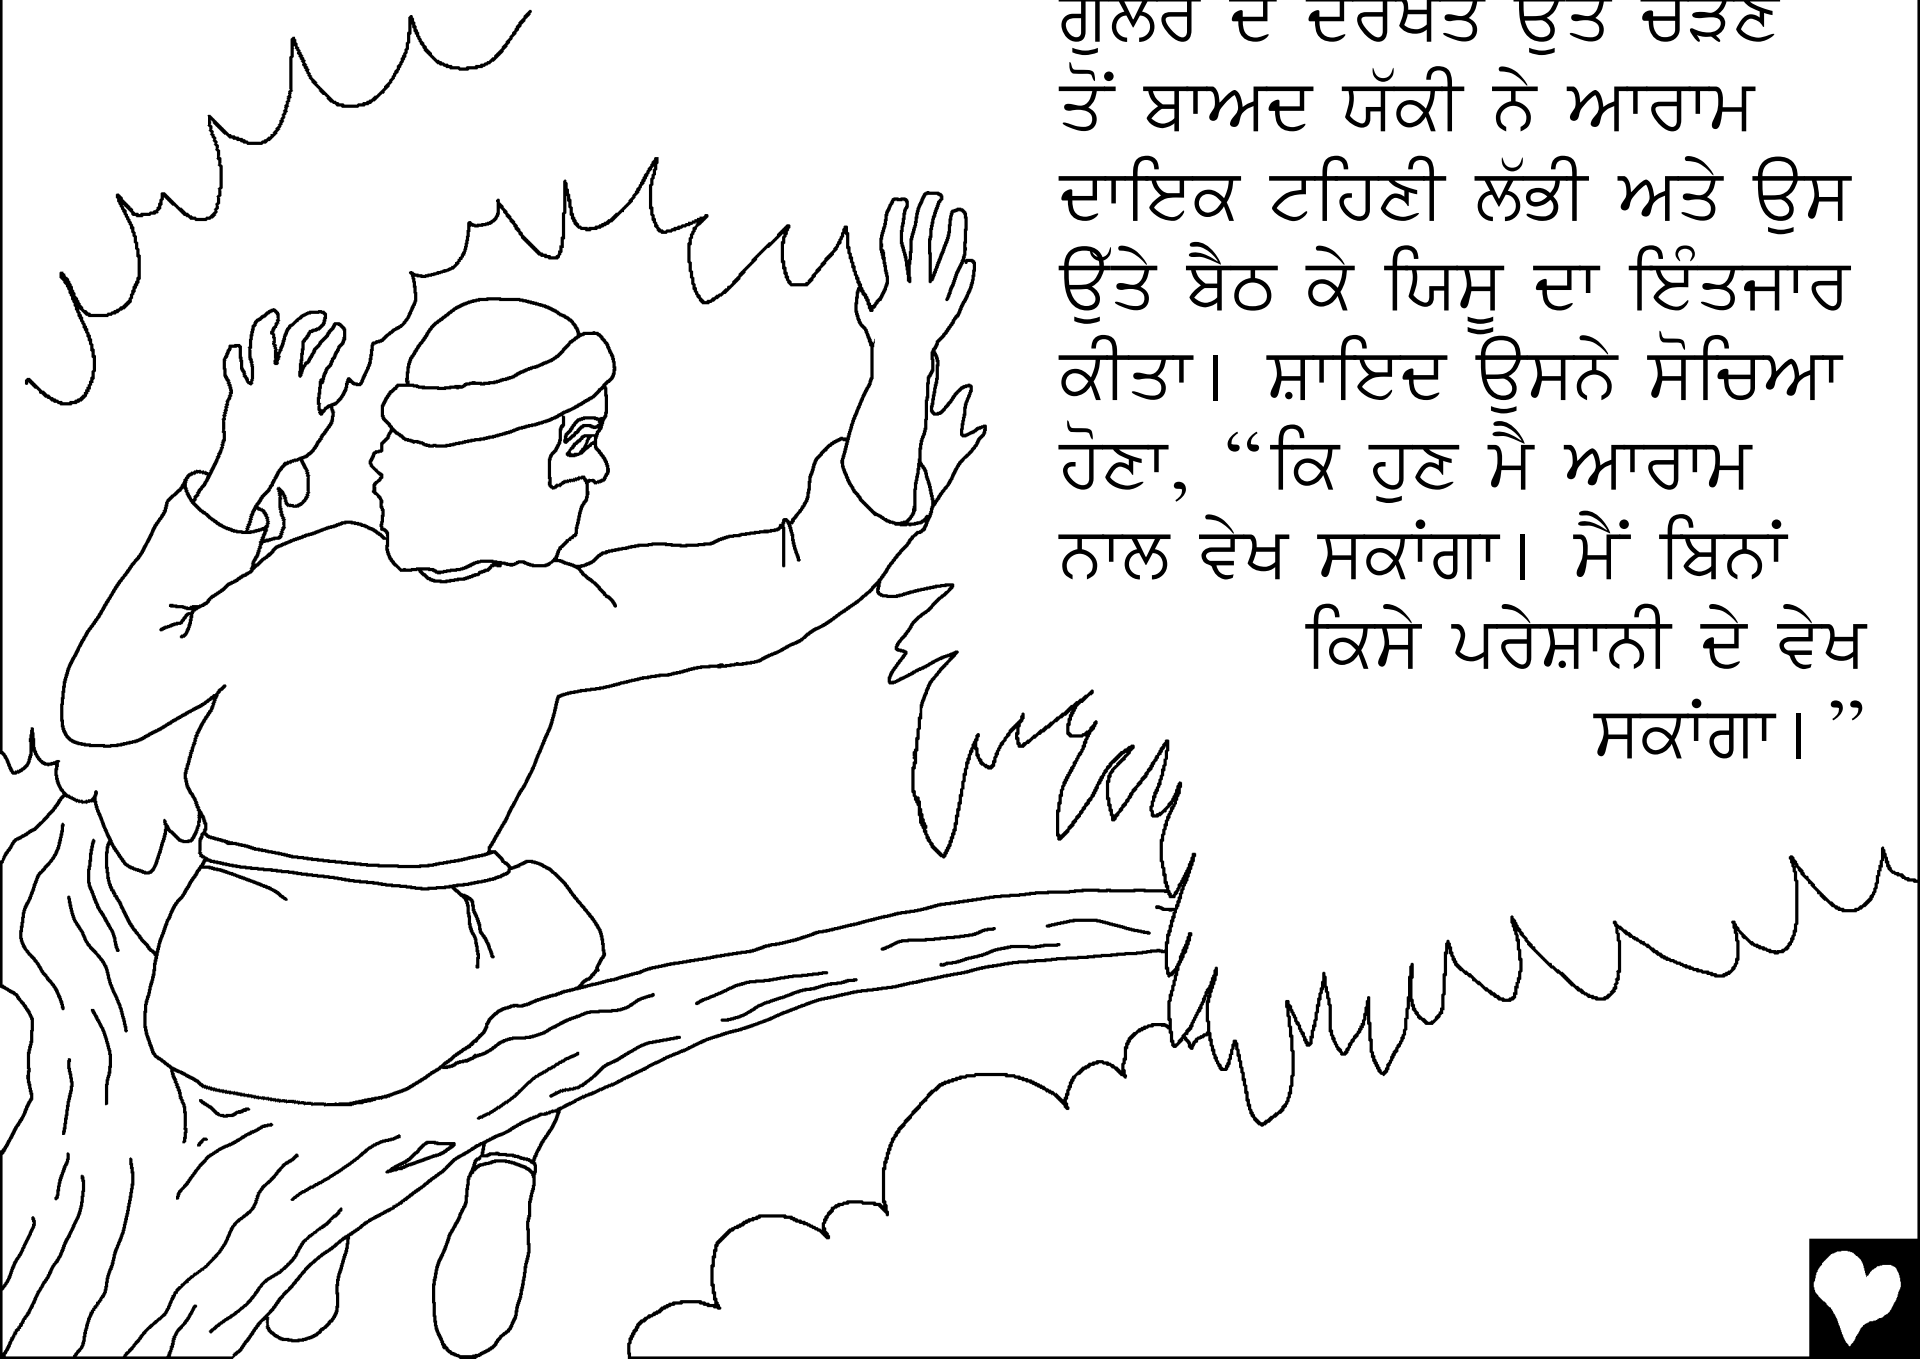 ਗੁਲਰ ਦੇ ਦਰਖਤ ਉਤੇ ਚੜਣ
ਤੋਂ ਬਾਅਦ ਯੱਕੀ ਨੇ ਆਰਾਮ
ਦਾਇਕ ਟਹਿਣੀ ਲੱਭੀ ਅਤੇ ਉਸ
ਉੱਤੇ ਬੈਠ ਕੇ ਯਿਸੂ ਦਾ ਇੰਤਜਾਰ
ਕੀਤਾ। ਸ਼ਾਇਦ ਉਸਨੇ ਸੋਚਿਆ
ਹੋਣਾ, “ਕਿ ਹੁਣ ਮੈ ਆਰਾਮ
ਨਾਲ ਵੇਖ ਸਕਾਂਗਾ। ਮੈਂ ਬਿਨਾਂ
ਕਿਸੇ ਪਰੇਸ਼ਾਨੀ ਦੇ ਵੇਖ
ਸਕਾਂਗਾ।”